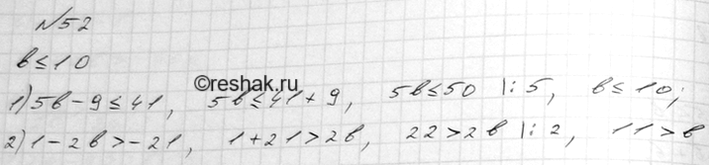 №52
b≤10
©reshak.ru
1) 5b-9≤41, 5b≤41+9, 5b≤50 |:5, b≤10;
2) 1-2b>-21, 1+21>2b, 22>2b |:2, 11>b